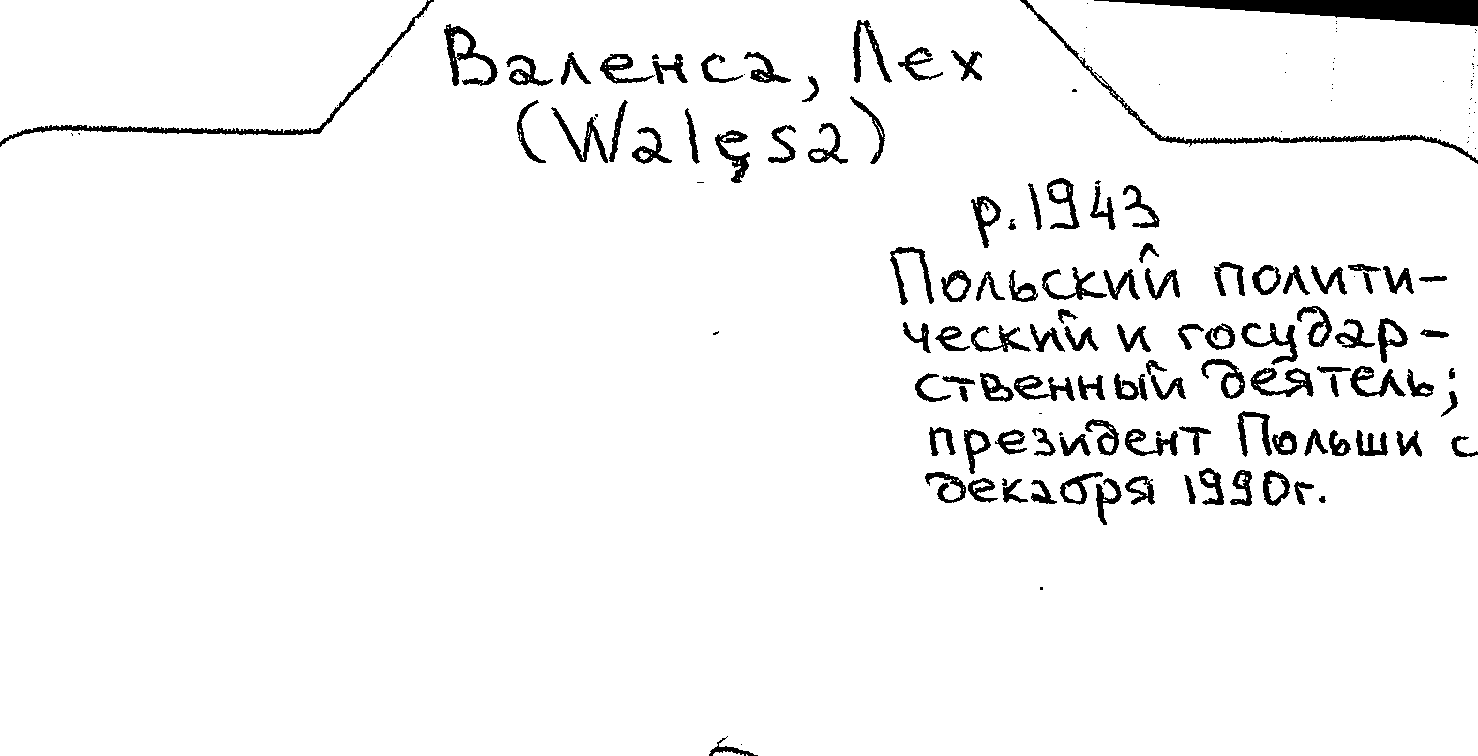 Валенса, Лех
(Walęsa)
р. 1943
Польский полити-
ческий и государ-
ственный деятель;
президент Польши с
декабря 1990г.